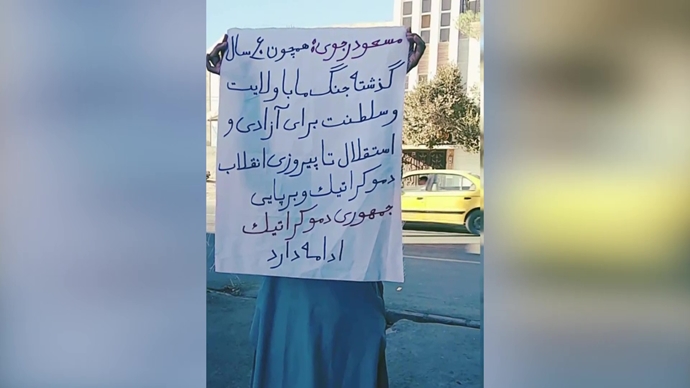 مسعود رجوی: همچون ۶۰ سال
گذشته جنگ ما با ولایت
و سلطنت برای آزادی و
استقلال تا پیروزی انقلاب
دموکراتیک و برپایی
جمهوری دموکراتیک
ادامه دارد